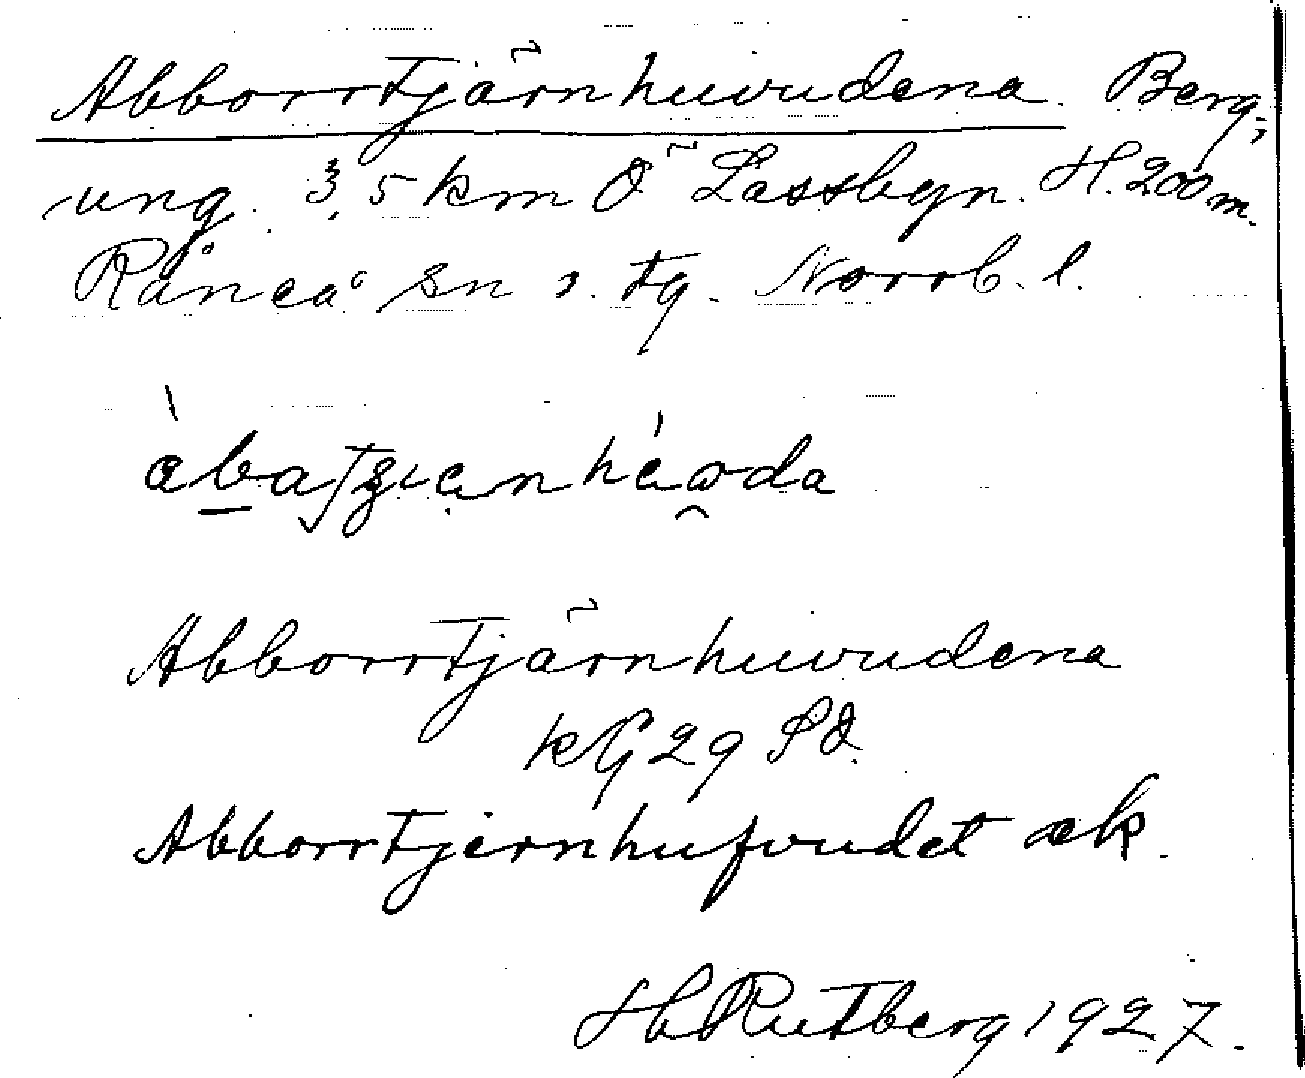 Abborrtjärnhuvudena. Berg;
ung. 3,5 km Ö Lassbyn. H. 200 m.
Råneå sn o. tg. Norrb. l.
Abborrtjärnhuvudena
kG 29 SÖ.
Abborrtjernhufvudet ek.
H Rutberg 1927.